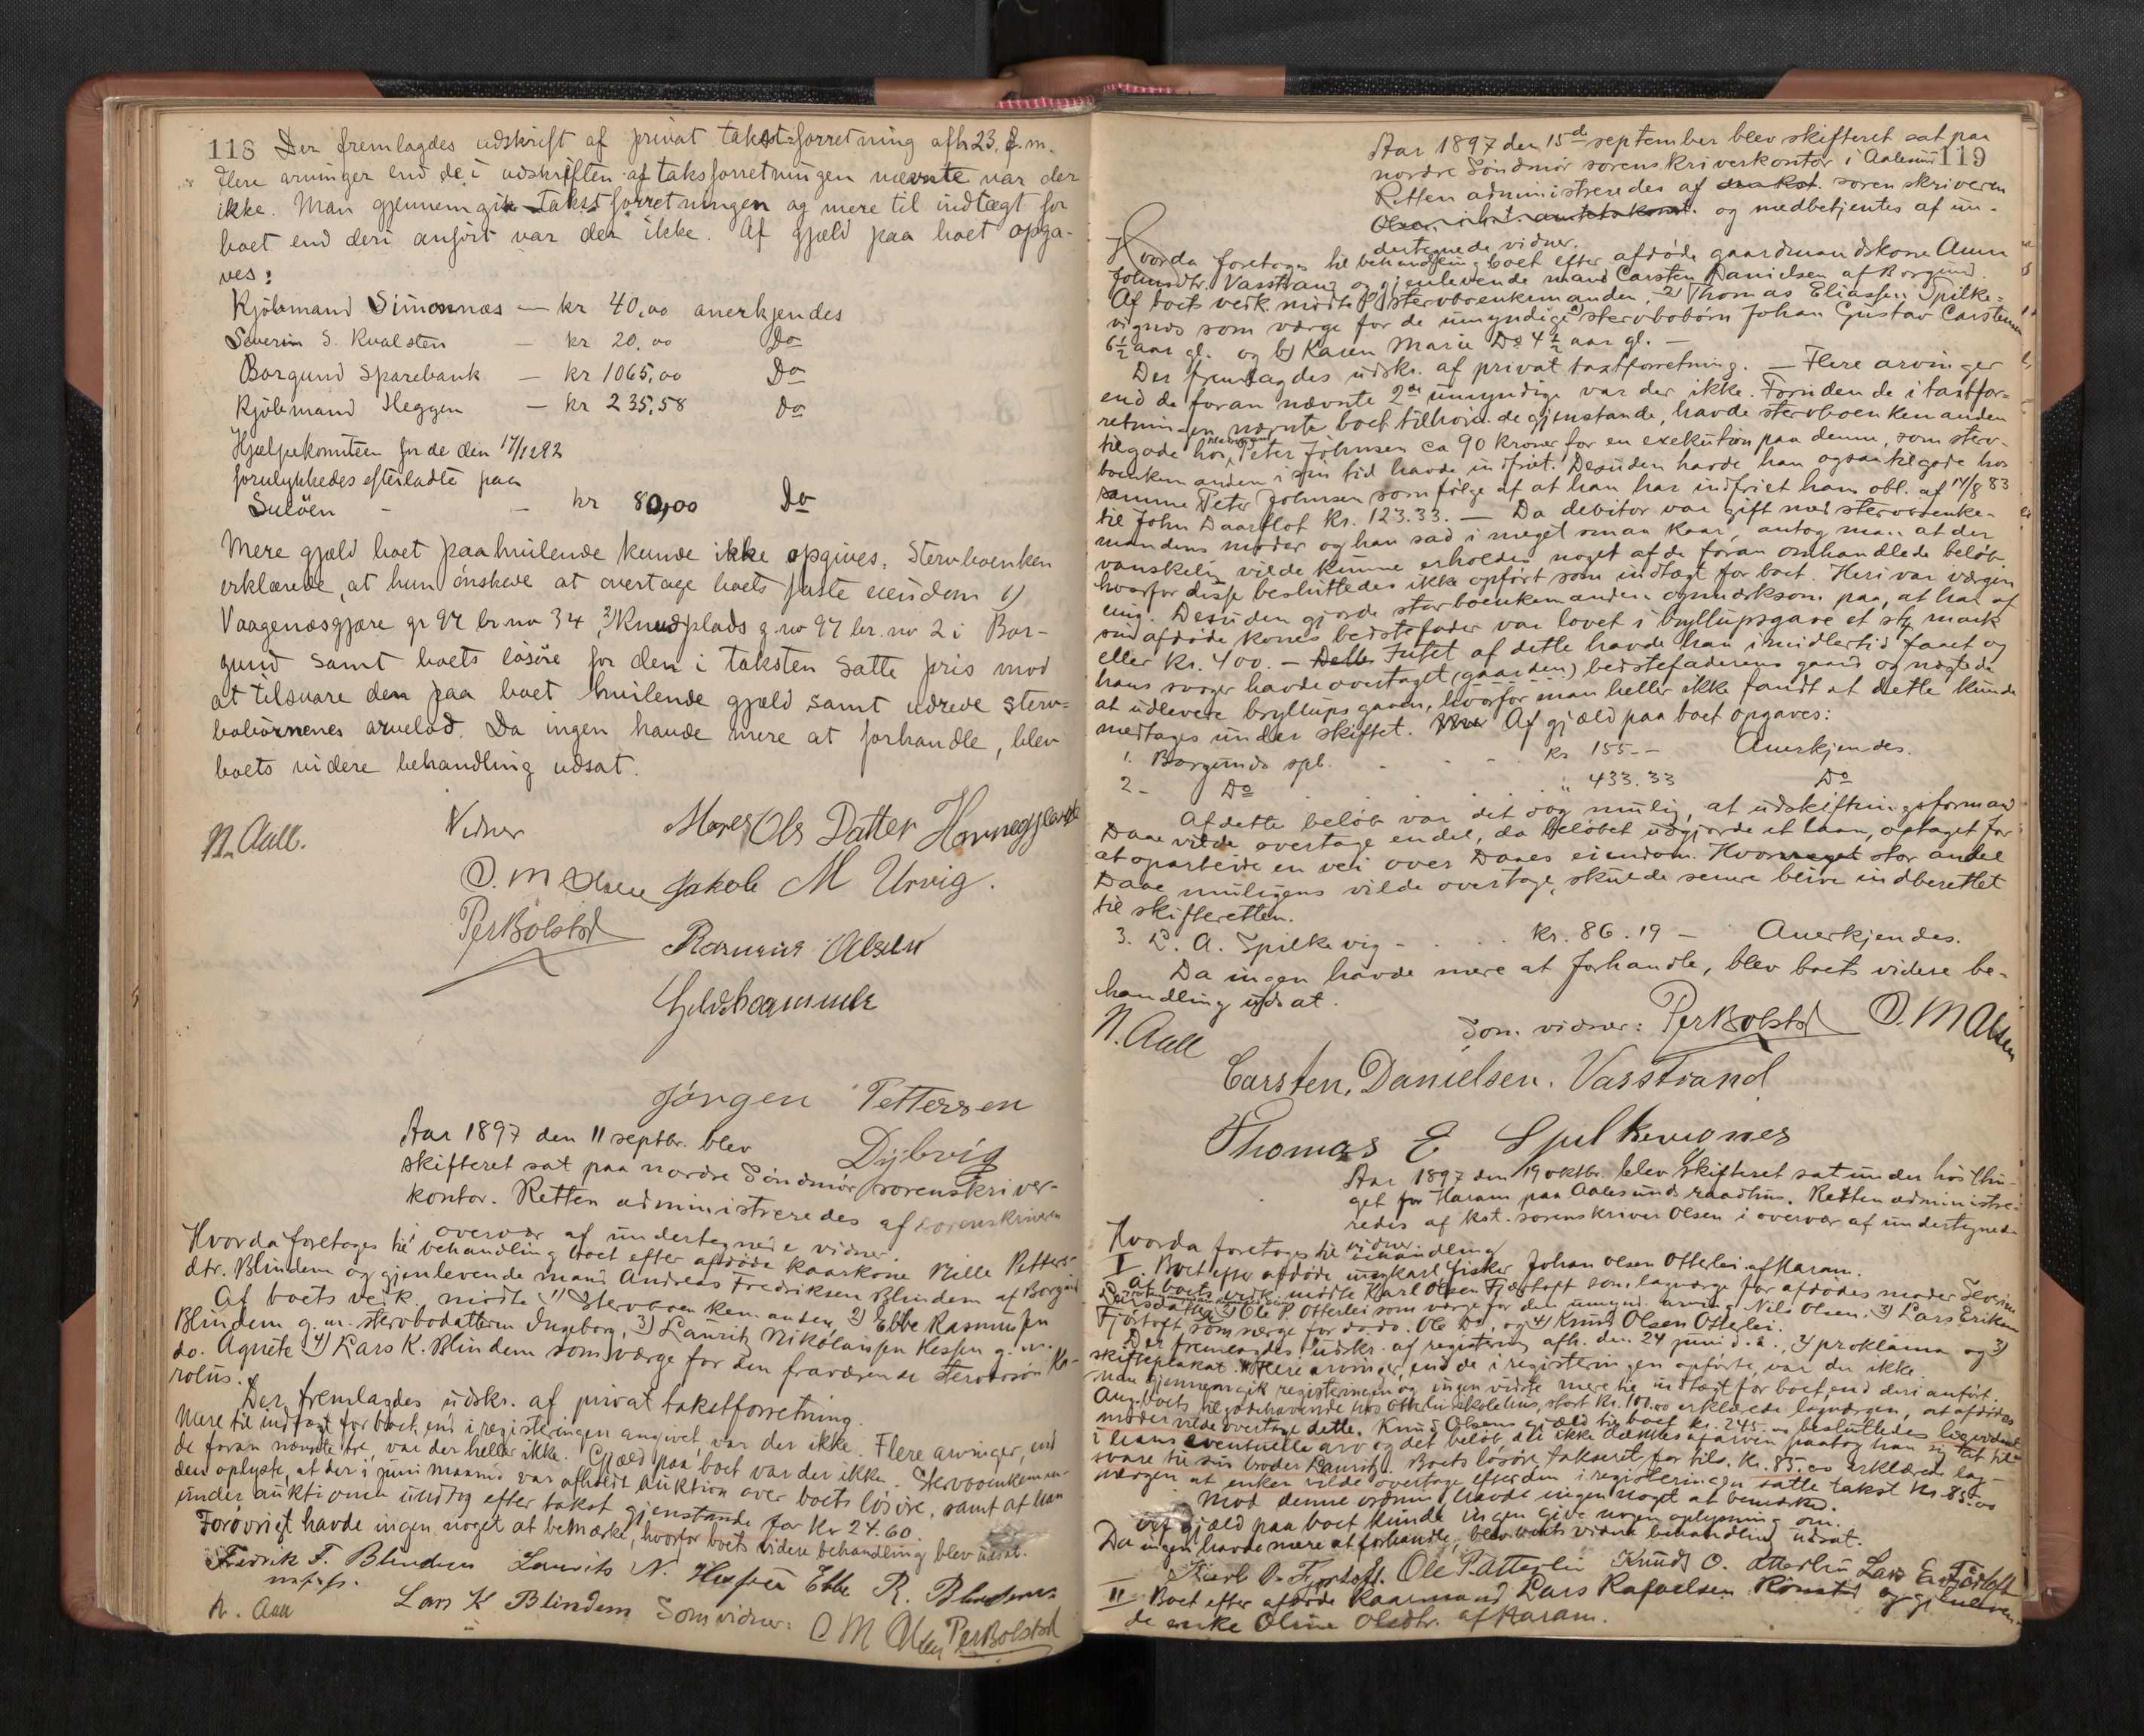 118
Der fremlagdes udskrift af privat takstforretning afh 23. f. m.
Flere arvinger end de i udskriften af taksforretningen nævnte var der
ikke. Man gjennemgik takstforretningen og mere til indtægt for
boet end deri anført var der ikke. Af gjæld paa boet opga-
ves:
Kjøbmand Simonnæs — kr 40,00 anerkjendes
Severin S. Kvalsten — kr 20,00 Do
Borgund Sparebank — kr 1065,00 Do
Kjøbmand Heggen — kr 235,58 Do
Hjælpekomiteen for de den 17/12 92
forulykkedes efterladte paa
Suløen - — kr 80,00 Do
Mere gjæld boet paahvilende kunde ikke opgives. Stervboenken
erklærede, at hun ønskede at overtage boets faste eiendom 1)
Vaagenæsgjære gr 97 br no 34, 2) Knudplads g. no 97 br. no 2 i Bor-
gund samt boets løsøre for den i taksten satte pris mod
at tilsvare den paa boet hvilende gjæld samt udrede sterv-
bobørnenes arvelod. Da ingen havde mere at forhandle, blev
boets videre behandling udsat.
N. Aall.
Vidner
O. M Olsen
Per Bolstad
Ols Datter
Jakob M Urvig.
Rasmus Olsen
Jørgen Pettersen
Dybvig
Aar 1897 den 11 septbr. blev
skifteret sat paa nordre Søndmør sorenskriver-
kontor. Retten administreredes af sorenskriveren
i overvær af undertegnede vidner.
Hvorda foretages til behandling boet efter afdøde kaarkone Pille Petters-
dtr. Blindem og gjenlevende mand Andreas Fredriksen Blindem af Borgund
Af boets vedk. mødte 1) Stervboenkemanden, 2) Ebbe Rasmussen
Blindem g. m. stervbodatteren Ingeborg, 3) Laurits Nikolaissen Hessen g. m.
do. Agnete 4) Lars K. Blindem som værge for den fraværende stervbosøn Ka-
rolus.
Der fremlagdes udskr. af privat takstforretning.
Mere til indtægt for boet, end i registeringen angivet, var der ikke. Flere arvinger, end
de foran nævnte tre, var der heller ikke. Gjæld paa boet var der ikke. Stervboenkeman-
den oplyste, at der i juni maaned var afholdt auktion over boets løsøre, samt at han
under auktionen undtog efter takst gjenstande for Kr 24.60.
Forøvrigt havde ingen noget at bemærke, hvorfor boets videre behandling blev udsat.
Fredrik F. Blindem Laurits N. Hessen Ebbe R. Blindem
N. Aall Lars K Blindem Som vidner: O M Olsen Per Bolstad
119
Aar 1897 den 15de september blev skifteret sat paa
nordre Søndmør sorenskriverkontor i Aalesund
Retten administreredes af sorenskriveren
og medbetjentes af un-
dertegnede vidner.
Hvorda foretages til behandling boet efter afdøde gaardmandskone Anne
Johnsdtr. Vasstrand og gjenlevende mand Carsten Danielsen af Borgund.
Af boets vedk. mødte 1) Stervboenkemanden, 2) Thomas Eliassen Spilke-
vignes som værge for de umyndige stervbobørn a) Johan Gustav Carstensen
6½ aar gl. og b) Karen Marie Do 4½ aar gl. —
Der fremlagdes udskr. af privat taxtforretning. — Flere arvinger
end de foran nævnte 2de umyndige var der ikke. Foruden de i taxtfor-
retningen nævnte boet tilhørende gjenstande, havde stervboenkemanden
tilgode hos Peter Johnsen ca 90 kroner for en exekution paa denne, som sterv-
boenkemanden i sin tid havde indfriet. Desuden havde han ogsaa tilgode hos
samme Peter Johnsen som følge af at han har indfriet hans obl. af 14/8 83
til John Daarflot Kr. 123.33. — Da debitor var gift med stervboenke-
mandens moder og han sad i meget smaa kaar, antog man at der
vanskelig vilde kunne erholdes noget af de foran omhandlede beløb,
hvorfor disse besluttedes ikke opført som indtægt for boet. Heri var værgen
enig. Desuden gjorde stervboenkemanden opmærksom paa, at han af
sin afdøde kones bedstefader var lovet i bryllupsgave et stk mark
eller Kr. 400. — Intet af dette havde han imidlertid faaet og
hans svoger havde overtaget (gaarden) bedstefaderens gaard og nægtede
at udlevere bryllupsgaven, hvorfor man heller ikke fandt at dette kunde
medtages under skiftet. Af gjæld paa boet opgaves:
1. Borgunds spb. - - - kr 155.- Anerkjendes.
2 - Do " 433.33 Do
Af dette beløb var det dog mulig, at udskiftningsformand
Daae vilde overtage endel, da beløbet udgjorde et laan, optaget for
at oparbeide en vei over Daaes eiendom. Hvor stor andel
Daae muligens vilde overtage, skulde senere blive indberettet
til skifteretten.
3. L. A. Spilkevig - kr. 86.19 — Anerkjendes.
Da ingen havde mere at forhandle, blev boets videre be-
handling udsat.
N. Aall Som vidner: Per Bolstad O. M Olsen
Carsten, Danielsen. Vasstrand
Thomas E Spilkevignes
Aar 1897 den 19 oktbr. blev skifteret sat under høstthin-
get for Haram paa Aalesunds raadhus. Retten administre-
redes af kst. sorenskriver Olsen i overvær af undertegnede
vidner.
Hvorda foretages til behandling
I. Boet efter afdøde ungkarl fisker Johan Olsen Otterlei af Haram.
Af boets vedk. mødte Karl Olsen Fjørtoft som lagværge for afdødes moder Severine
Larsdatter 2) Ole P. Otterlei som værge for den umynd. arving Nils Olsen, 3) Lars Eriksen
Fjørtoft som værge for do. do. Ole Do, og 4) Knud Olsen Otterlei.
Der fremlagdes 1) udskr. af registering afh. den 24 juni d. a., 2) proklama og 3)
skifteplakat. Flere arvinger, end de i registeringen opførte, var der ikke.
Man gjennemgik registeringen og ingen vidste mere til indtægt for boet end deri anført.
Ang. boets tilgodehavende hos Otterlei skolehus, stort Kr. 100.00 erklærede lagværgen, at afdødes
moder vilde overtage dette. Knud Olsens gjæld til boet kr. 245.00 besluttedes
i hans eventuelle arv og det beløb, der ikke dækkes af arven paatog han sig at til-
svare til sin broder Laurits. Boets løsøre takseret for tils. Kr. 85.00 erklærede lag-
værgen at enken vilde overtage efter den i registeringen satte takst Kr. 85.00
Mod denne ordning havde ingen noget at bemærke.
Om gjæld paa boet kunde ingen give nogen oplysning om.
Da ingen havde mere at forhandle, blev boets videre behandling udsat.
Karl O. Fjørtoft. Ole P. Otterlei Knud O. Otterlei Lars E. Fjørtoft
II Boet efter afdøde kaarmand Lars Rafaelsen Rønstad og gjenleven-
de enke Oline Olsdtr. af Haram.